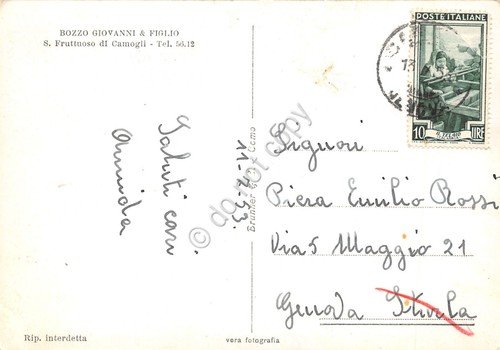 BOZZO GIOVANNI & FIGLIO
S. Fruttuoso di Camogli - Tel. 56.12
POSTE ITALIANE
IL TELAIO
10 LIRE
Saluti cari
Armida
11-7-53.
© do not copy
Brunner & C. Como
Signori
Piera Emilio Rossi
Via 5 Maggio 21
Genova Sturla
Rip. interdetta
vera fotografia